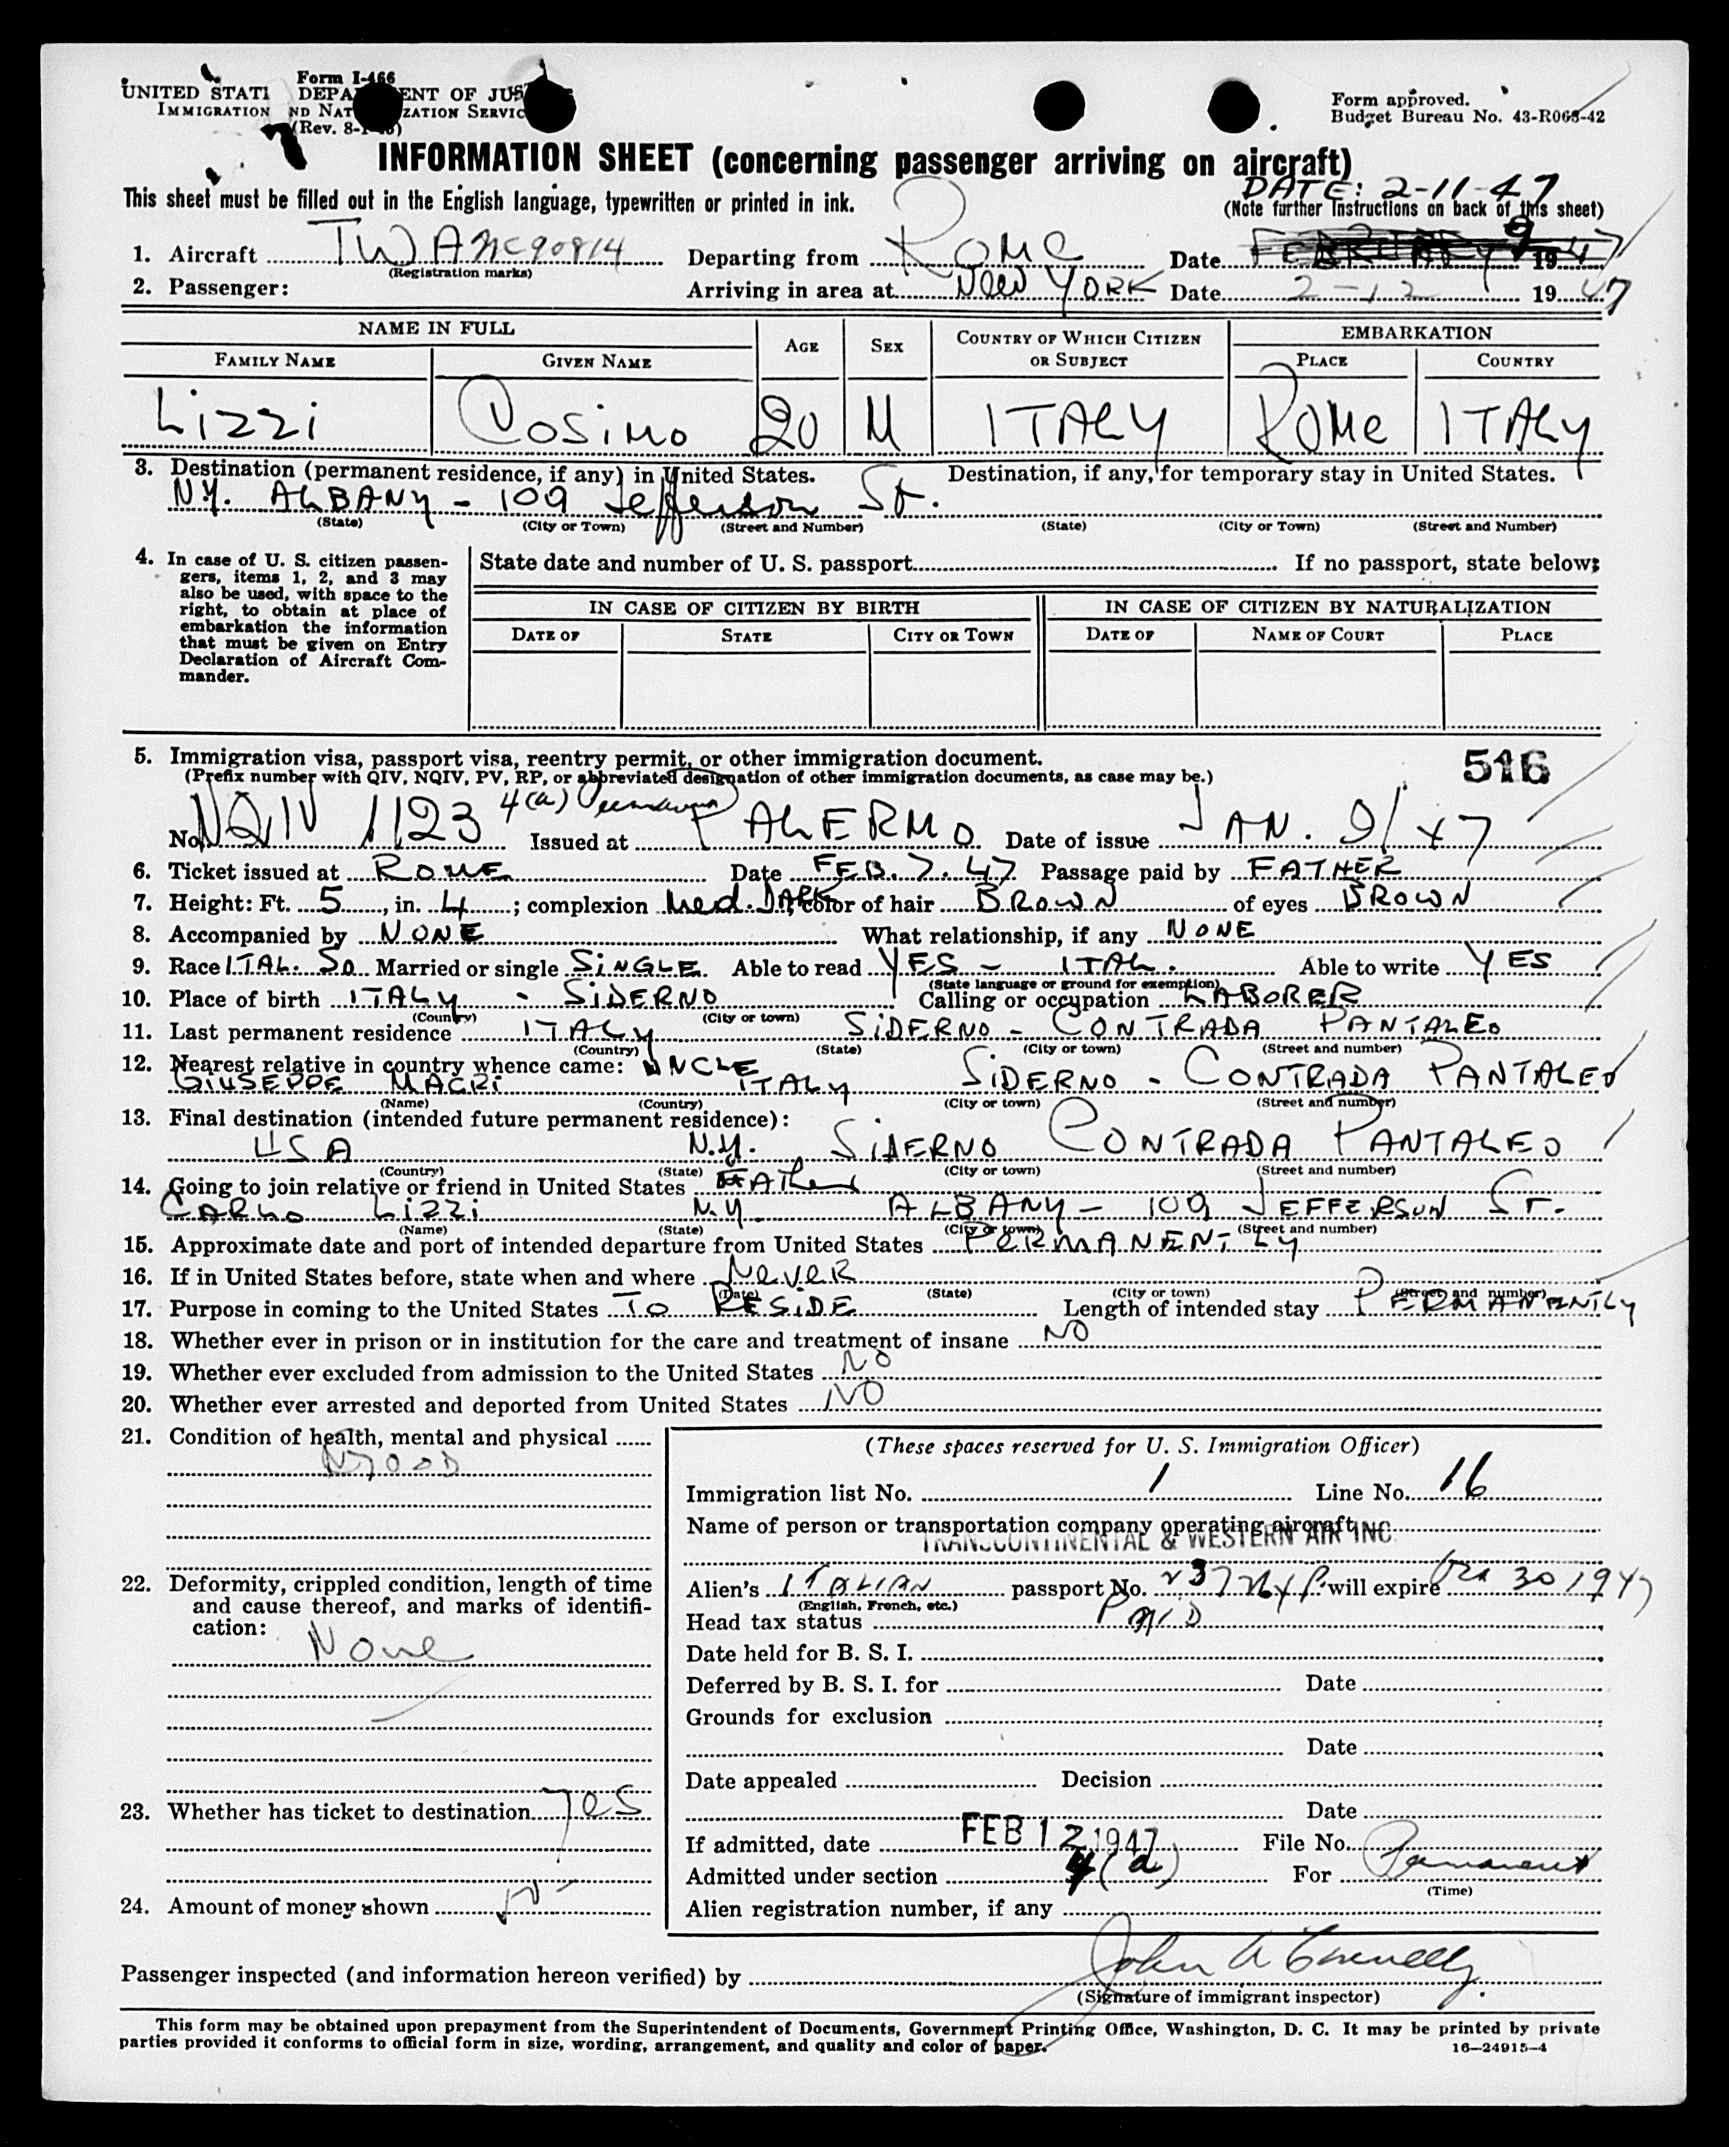 Form I-466
UNITED STAT DEPA ENT OF JUS
IMMIGRATION ND NAT ZATION SERVIC
(Rev. 8-1-45)
Form approved.
Budget Bureau No. 43-R065-42
INFORMATION SHEET (concerning passenger arriving on aircraft)
DATE: 2-11-47
This sheet must be filled out in the English language, typewritten or printed in ink.
(Note further instructions on back of this sheet)
1. Aircraft TWA NC90814 Departing from ROME Date FEBRUARY 9 1947
(Registration marks)
2. Passenger: Arriving in area at New YORK Date 2-12 1947
NAME IN FULL AGE SEX COUNTRY OF WHICH CITIZEN OR SUBJECT EMBARKATION
FAMILY NAME GIVEN NAME PLACE COUNTRY
Lizzi Cosimo 20 M ITALY ROME ITALY
3. Destination (permanent residence, if any) in United States. Destination, if any, for temporary stay in United States.
N.Y. ALBANY - 109 Jefferson St.
(State) (City or Town) (Street and Number) (State) (City or Town) (Street and Number)
4. In case of U. S. citizen passen-
gers, items 1, 2, and 3 may
also be used, with space to the
right, to obtain at place of
embarkation the information
that must be given on Entry
Declaration of Aircraft Com-
mander.
State date and number of U. S. passport If no passport, state below:
IN CASE OF CITIZEN BY BIRTH IN CASE OF CITIZEN BY NATURALIZATION
DATE OF STATE CITY OR TOWN DATE OF NAME OF COURT PLACE
5. Immigration visa, passport visa, reentry permit, or other immigration document.
516
(Prefix number with QIV, NQIV, PV, RP, or abbreviated designation of other immigration documents, as case may be.)
No. NQIV 1123 4(a) Permanent Issued at PALERMO Date of issue JAN. 9/47
6. Ticket issued at ROME Date FEB. 7. 47 Passage paid by FATHER
7. Height: Ft. 5, in. 4; complexion Med. DARK, color of hair BROWN of eyes BROWN
8. Accompanied by NONE What relationship, if any NONE
9. Race ITAL. SO. Married or single SINGLE. Able to read YES - ITAL. Able to write YES
(State language or ground for exemption)
10. Place of birth ITALY - SIDERNO Calling or occupation LABORER
(Country) (City or town)
11. Last permanent residence ITALY SIDERNO - CONTRADA PANTALEO
(Country) (State) (City or town) (Street and number)
12. Nearest relative in country whence came: UNCLE
GIUSEPPE MACRI ITALY SIDERNO - CONTRADA PANTALEO
(Name) (Country) (City or town) (Street and number)
13. Final destination (intended future permanent residence):
USA N.Y. SIDERNO CONTRADA PANTALEO
(Country) (State) (City or town) (Street and number)
14. Going to join relative or friend in United States FATHER
CARLO LIZZI N.Y. ALBANY - 109 JEFFERSON ST.
(Name) (State) (City or town) (Street and number)
15. Approximate date and port of intended departure from United States PERMANENTLY
16. If in United States before, state when and where NEVER
(Date) (State) (City or town) (Street and number)
17. Purpose in coming to the United States TO RESIDE Length of intended stay PERMANENTLY
18. Whether ever in prison or in institution for the care and treatment of insane NO
19. Whether ever excluded from admission to the United States NO
20. Whether ever arrested and deported from United States NO
21. Condition of health, mental and physical
GOOD
22. Deformity, crippled condition, length of time
and cause thereof, and marks of identifi-
cation:
None
23. Whether has ticket to destination yes
24. Amount of money shown
(These spaces reserved for U. S. Immigration Officer)
Immigration list No. 1 Line No. 16
Name of person or transportation company operating aircraft
TRANSCONTINENTAL & WESTERN AIR INC.
Alien's ITALIAN passport No. will expire 30 1947
(English, French, etc.)
Head tax status PAID
Date held for B. S. I.
Deferred by B. S. I. for Date
Grounds for exclusion
Date
Date appealed Decision
Date
If admitted, date FEB 12 1947 File No.
Admitted under section 4(a) For Permanent
(Time)
Alien registration number, if any
Passenger inspected (and information hereon verified) by John A Connelly
(Signature of immigrant inspector)
This form may be obtained upon prepayment from the Superintendent of Documents, Government Printing Office, Washington, D. C. It may be printed by private
parties provided it conforms to official form in size, wording, arrangement, and quality and color of paper.
16—24915-4